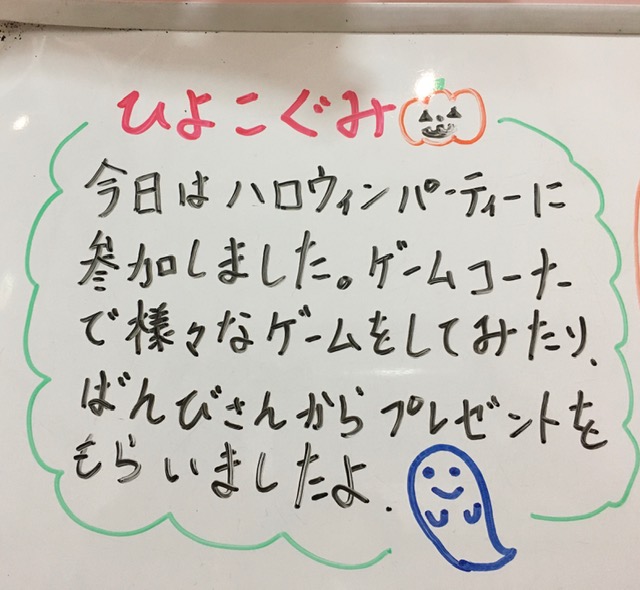 ひよこぐみ
今日はハロウィンパーティーに
参加しました。ゲームコーナー
で様々なゲームをしてみたり、
ばんびさんからプレゼントを
もらいましたよ.